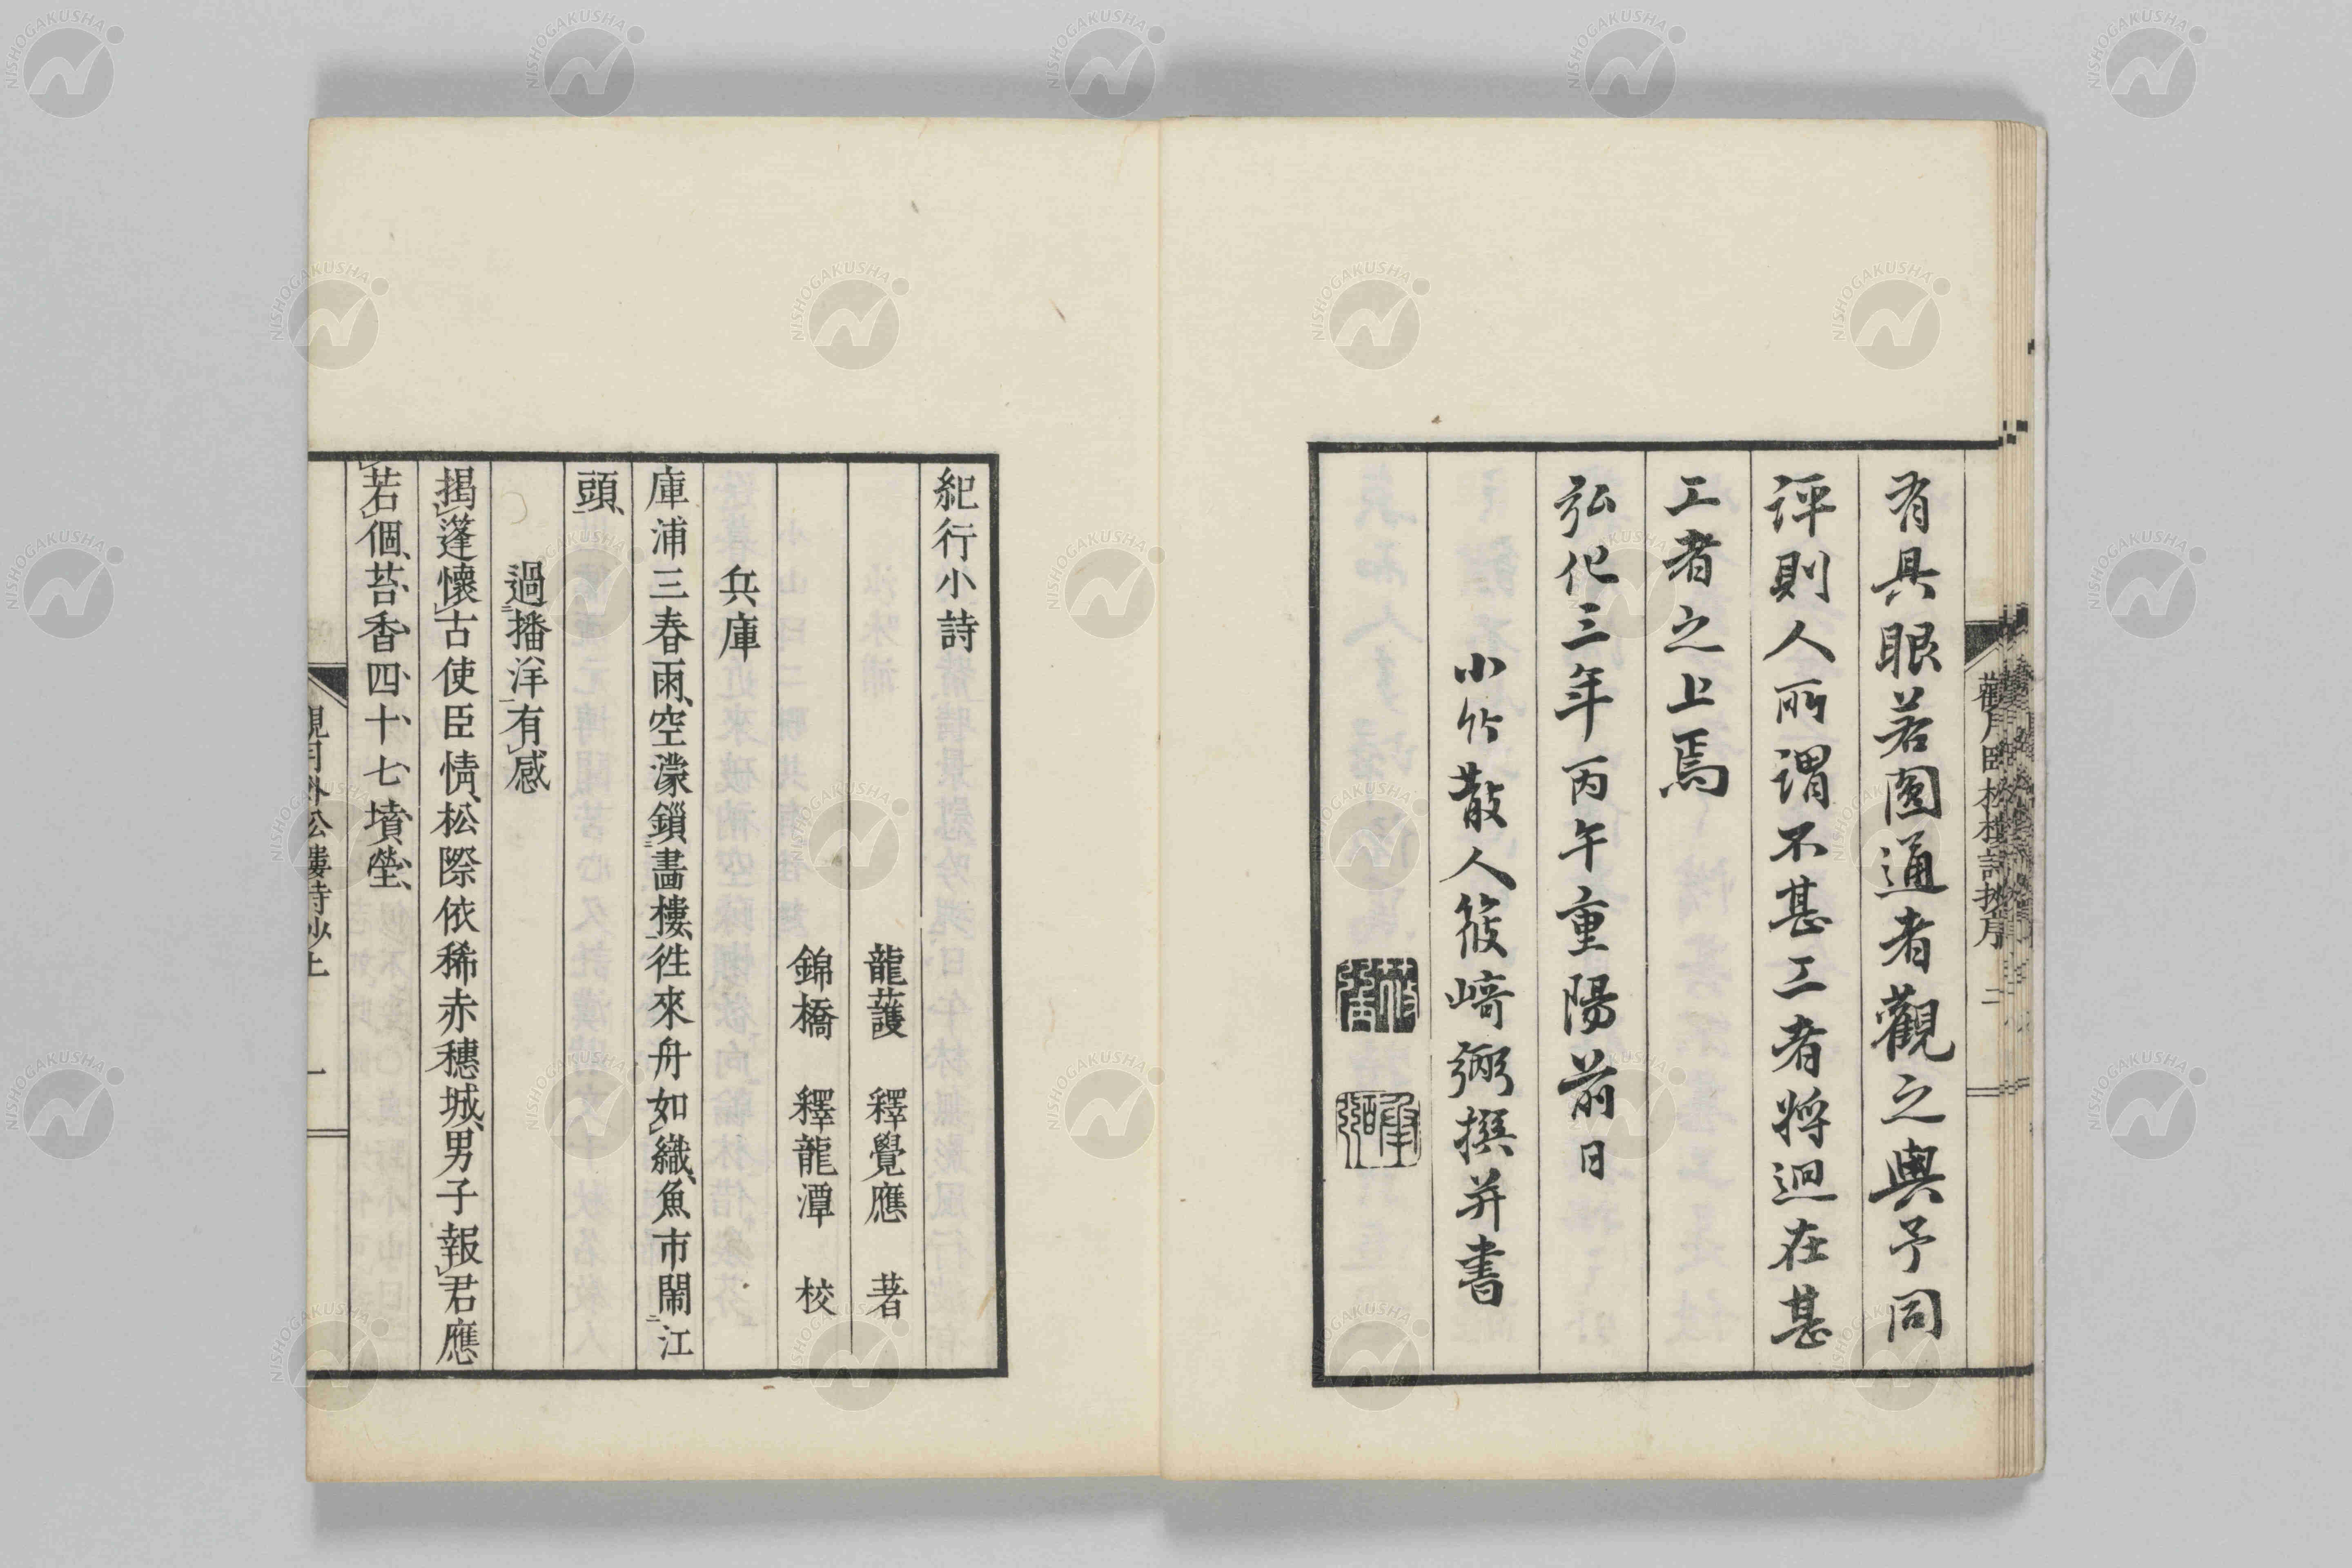 有具眼若圓通者觀之與予同
評則人所謂不甚工者將迥在甚
工者之上焉
弘化三年丙午重陽前日
小竹散人筱崎弼撰并書
觀月臥松樓詩抄序 二
紀行小詩
龍護 釋覺應 著
錦橋 釋龍潭 校
兵庫
庫浦三春雨空濛鎖畵樓往來舟如織魚市閙江
頭
過播洋有感
揭蓬懷古使臣情松際依稀赤穗城男子報君應
若個苔香四十七墳塋
觀月臥松樓詩抄上 一
NISHOGAKUSHA